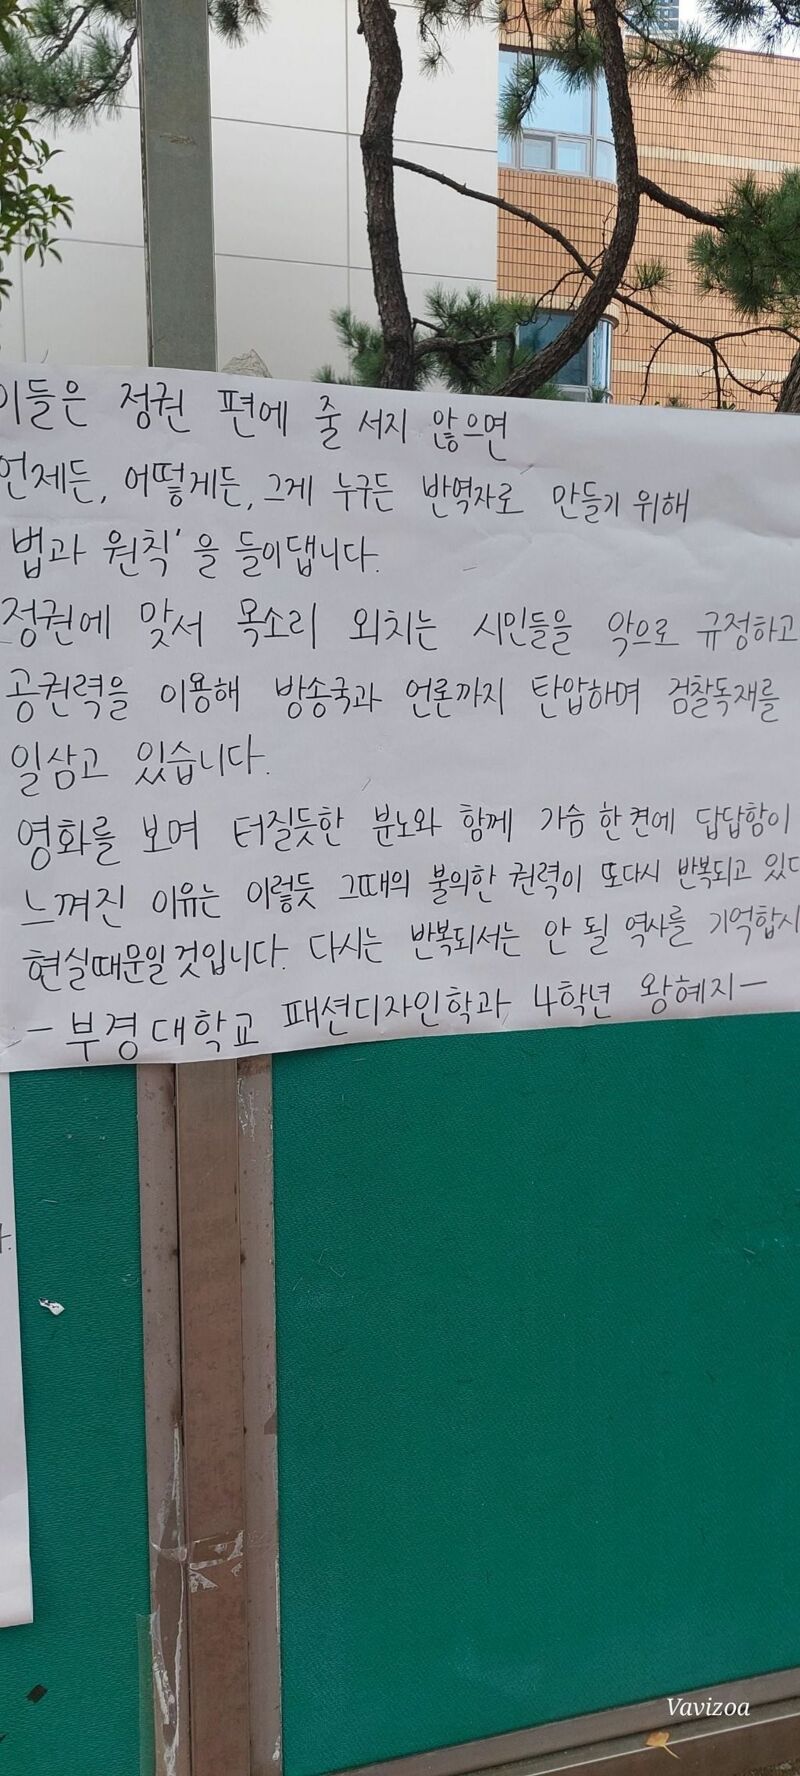 이들은 정권 편에 줄 서지 않으면
언제든, 어떻게든, 그게 누구든 반역자로 만들기 위해
법과 원칙'을 들이댑니다.
정권에 맞서 목소리 외치는 시민들을 악으로 규정하고
공권력을 이용해 방송국과 언론까지 탄압하며 검찰독재를
일삼고 있습니다.
영화를 보며 터질듯한 분노와 함께 가슴 한 켠에 답답함이
느껴진 이유는 이렇듯 그때의 불의한 권력이 또다시 반복되고 있다
현실때문일것입니다. 다시는 반복되서는 안 될 역사를 기억합시
- 부경대학교 패션디자인학과 4학년 왕혜지 -
Vavizoa